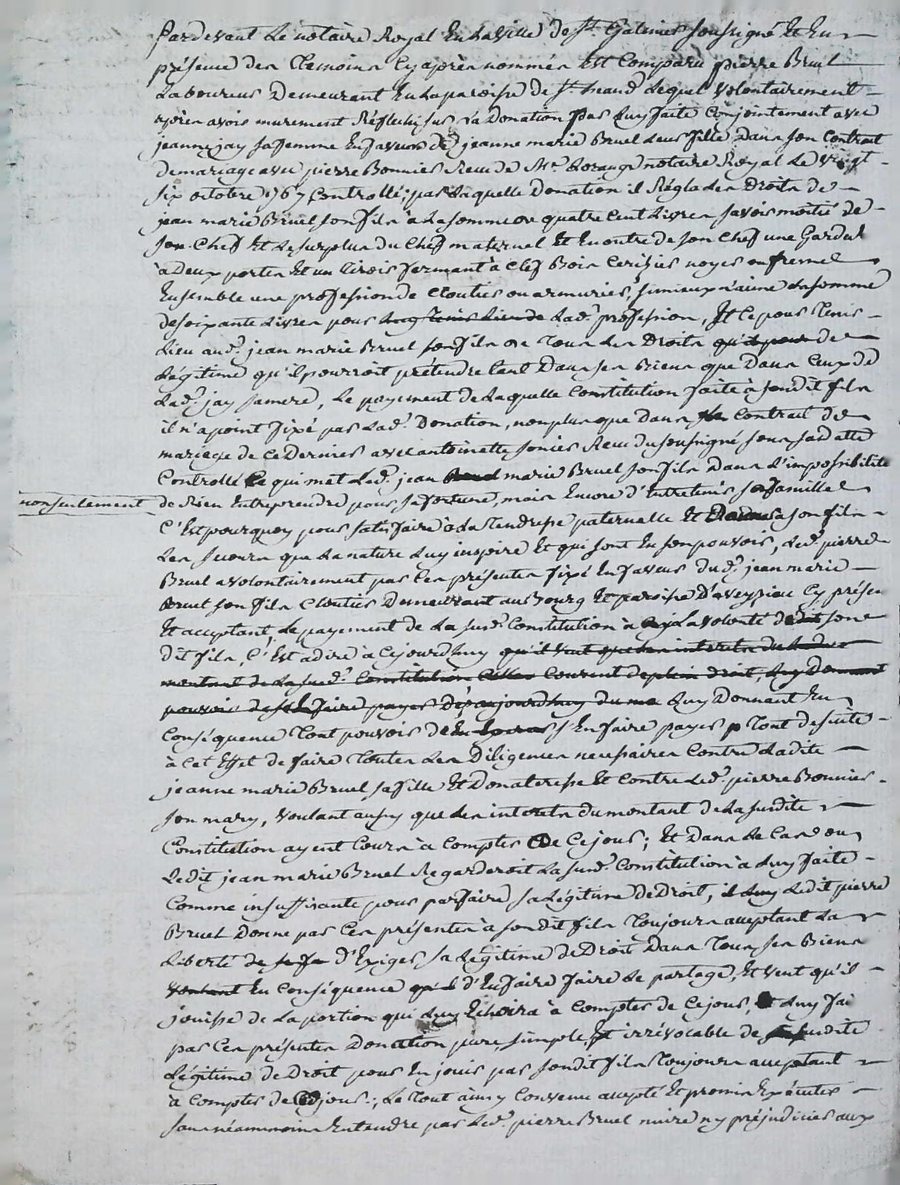 Pardevant Le notaire Royal En La ville de St. Galmier soussigné Et En
présence des temoins Cy après nommés Est Comparu pierre Bruel
Laboureur Demeurant En La paroisse de St. Lequel volontairement
après avoir murement Réflechi sur La Donation par Luy faite Conjointement avec
jeanne jay sa femme En faveur de jeanne marie Bruel Leur fille dans son Contrat
de mariage avec pierre Bonnier Recu de Me. notaire Royal Le vingt
six octobre 1767 Controllé; par Laquelle Donation il Régla Les Droits de
jean marie Bruel son fils à La somme de quatre Cent Livres savoir moitié de
son Chef Et Le surplus du Chef maternel Et En outre de son Chef une Garderobe
à deux portes Et un fermant à Clef Bois Cerizier noyer ou fresne
Ensemble une profession de Cloutier ou armurier, si mieux n'aime La somme
de soixante Livres pour Lad. profession, Et Ce pour tenir
Lieu aud. jean marie Bruel son fils de Tous Les Droits qu'il pour de
Légitime qu'il pourroit prétendre tant Dans ses Biens que Dans Ceux de
Lad. jay sa mere, Le payement de Laquelle Constitution faite à sondit fils
il n'a point fixé par Lad. Donation, non plus que Dans Le Contrat de
mariage de Ce Dernier avec antoinette Recu du soussigné sous sa datte
Controllé Ce qui met Led. jean Bruel marie Bruel son fils Dans L'impossibilité
non seulement
de Rien Entreprendre pour sa fortune, mais Encore d'Entretenir sa famille
C'Est pourquoy pour satisfaire à La tendresse paternelle Et Donner à son fils
Les secours que La nature Luy inspire Et qui sont En son pouvoir, Led. pierre
Bruel a volontairement par Ces présentes fixé En faveur dud. jean marie
Bruel son fils Cloutier Demeurant au Bourg Et paroisse D'aveyzieu Cy présent
Et acceptant, Le payement de La susd. Constitution à La volonté dudit son
dit fils, C'Est à dire à Cejourdhuy qu'il veut que Les interets du
montant de La susd. Constitution Courent de plein droit, Luy Donnant
pouvoir de s'En faire payer Dès aujourdhuy du mo Luy Donnant En
Conséquence tout pouvoir de s'En faire payer p Tout de suite
à Cet Effet de faire toutes Les Diligences necessaires Contre Ladite
jeanne marie Bruel sa fille Et Donateresse Et Contre Led. pierre Bonnier
son mary, voulant aussy que Les interets du montant de La susdite
Constitution ayent Cours à Compter De Ce jour; Et Dans Le Cas ou
Ledit jean marie Bruel Regarderoit La susd. Constitution à Luy faite
Comme insuffisante pour parfaire sa Légitime De Droit, il Luy Ledit pierre
Bruel Donne par Ces présentes à sondit fils Toujours acceptant La
Liberté de se fe d'Exiger sa Légitime de Droit Dans Tous ses Biens
voulant En Conséquence d'En faire faire Le partage, Et veut qu'il
jouisse de La portion qui Luy Echoira à Compter de Ce jour, Luy fai
par Ces présentes Donation pure, simple, Et irrévocable de sa susdite
Légitime de Droit pour En jouir par sondit fils Toujours acceptant
à Compter de Ce jour; Le tout ainsy Convenu accepté Et promis Exécuter
sans néanmoins Entendre par Led. pierre Bruel nuire ny préjudicier aux